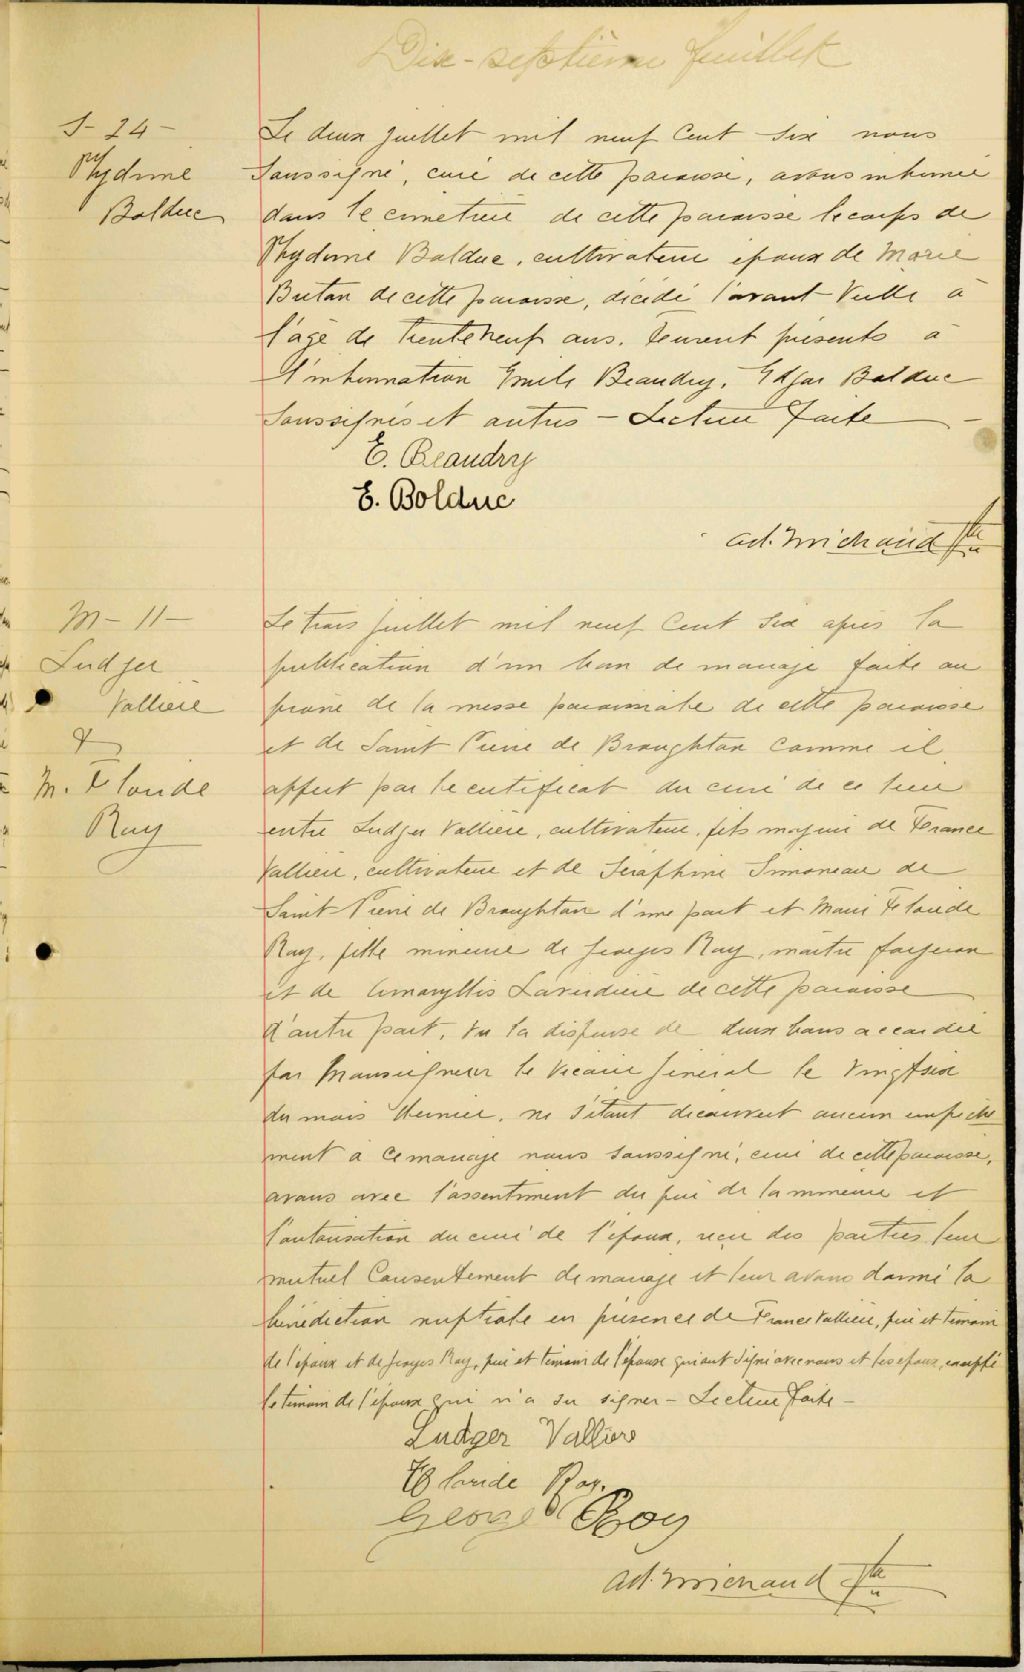 Dix-septième feuillet
S-24-
Phydime
Bolduc
Le deux juillet mil neuf Cent Six nous
Soussigné, curé de cette paroisse, avons inhumé
dans le cimetière de cette paroisse le corps de
Phydime Bolduc, cultivateur époux de Marie
Breton de cette paroisse, décédé l'avant Veille à
l'âge de trente neuf ans. Furent présents à
l'inhumation Emile Beaudry, Edgar Bolduc
Soussignés et autres - Lecture faite
E. Beaudry
E. Bolduc
Ad. Michaud Ptre
M-11-
Ludger
Vallière
&
M. Floride
Roy
Le trois juillet mil neuf Cent Six après la
publication d'un ban de mariage faite au
prône de la messe paroissiale de cette paroisse
et de Saint Pierre de Broughton comme il
appert par le certificat du curé de ce lieu
entre Ludger Vallière, cultivateur, fils majeur de France
Vallière, cultivateur et de Séraphine Simoneau de
Saint-Pierre de Broughton d'une part et Marie Floride
Roy, fille mineure de Georges Roy, maître forgeron
et de Amaryllis Laverdière de cette paroisse
d'autre part, vu la dispense de deux bans accordée
par Monseigneur le Vicaire Général le vingt six
du mois dernier, ne s'étant découvert aucun empêche
ment à ce mariage nous soussigné, curé de cette paroisse,
avons avec l'assentiment du père de la mineure et
l'autorisation du curé de l'époux, reçu des parties leur
mutuel Consentement de mariage et leur avons donné la
bénédiction nuptiale en présence de France Vallière, père et témoin
de l'époux et de Georges Roy, père et témoin de l'épouse qui ont signé avec nous et les époux, excepté
le témoin de l'époux qui n'a su signer - Lecture faite -
Ludger Vallière
Floride Roy.
George Roy
Ad. Michaud Ptre